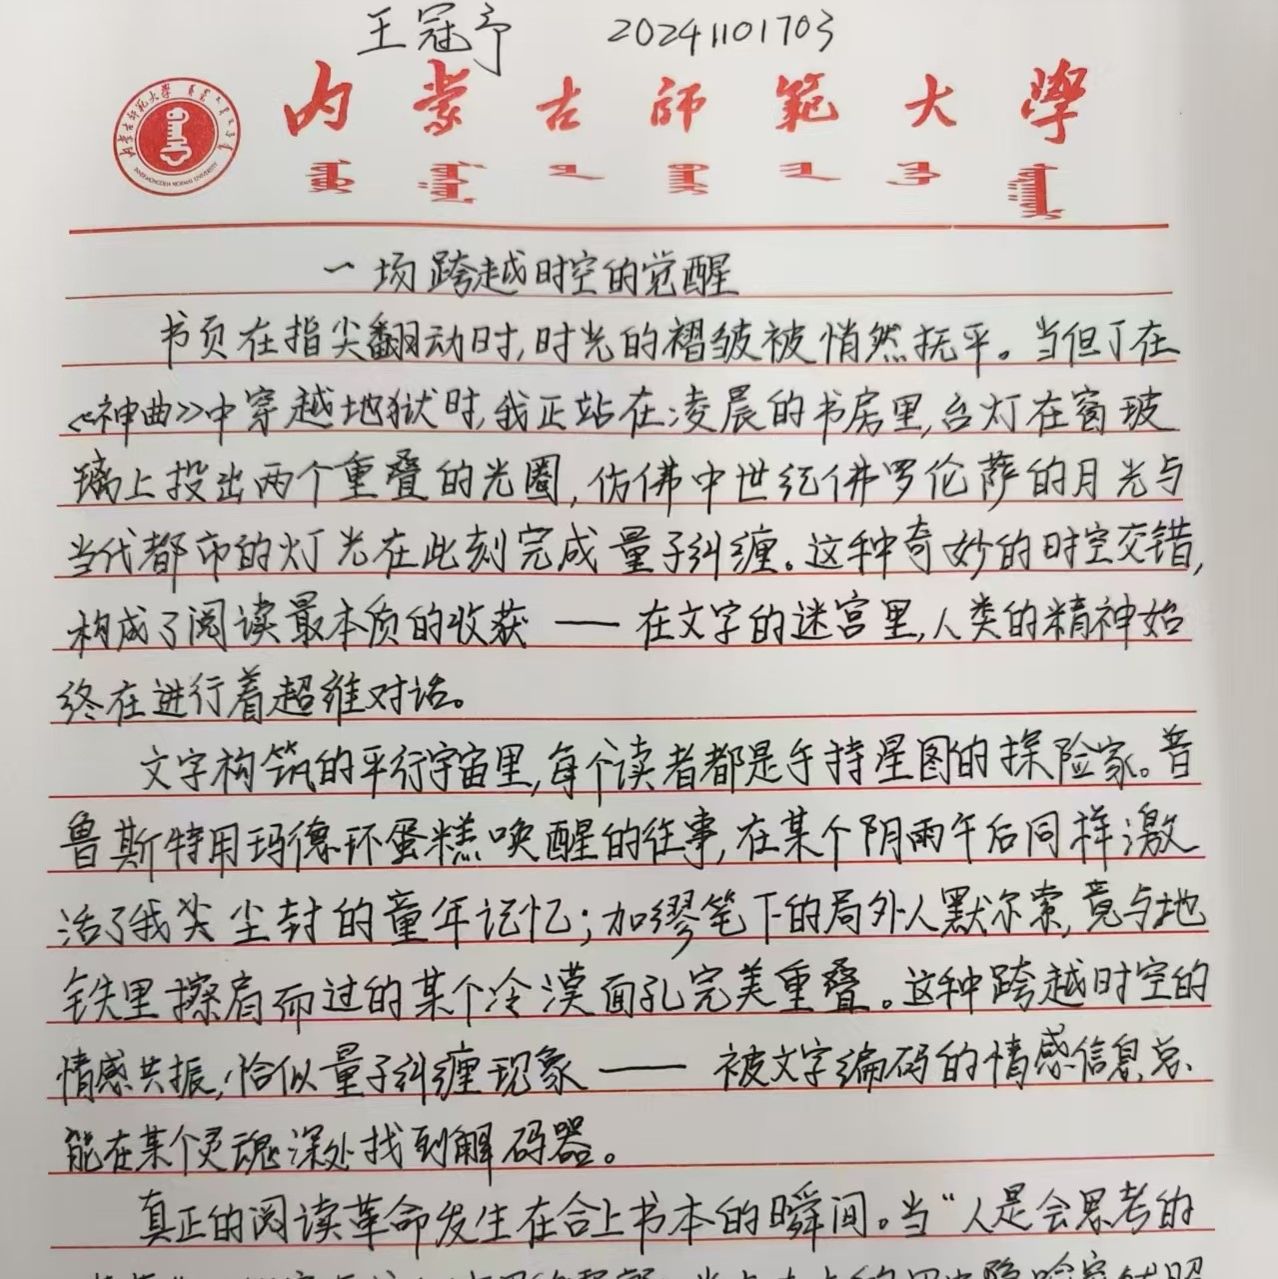 王冠予 20241101703
内蒙古师範大學
INNER MONGOLIA NORMAL UNIVERSITY
一场跨越时空的觉醒
书页在指尖翻动时,时光的褶皱被悄然抚平。当但丁在
《神曲》中穿越地狱时,我正站在凌晨的书房里,台灯在窗玻
璃上投出两个重叠的光圈,仿佛中世纪佛罗伦萨的月光与
当代都市的灯光在此刻完成量子纠缠。这种奇妙的时空交错,
构成了阅读最本质的收获——在文字的迷宫里,人类的精神始
终在进行着超维对话。
文字构筑的平行宇宙里,每个读者都是手持星图的探险家。普
鲁斯特用玛德琳蛋糕唤醒的往事,在某个阴雨午后同样激
活了我尖尘封的童年记忆;加缪笔下的局外人默尔索,竟与地
铁里擦肩而过的某个冷漠面孔完美重叠。这种跨越时空的
情感共振,恰似量子纠缠现象——被文字编码的情感信息,总
能在某个灵魂深处找到解码器。
真正的阅读革命发生在合上书本的瞬间。当“人是会思考的